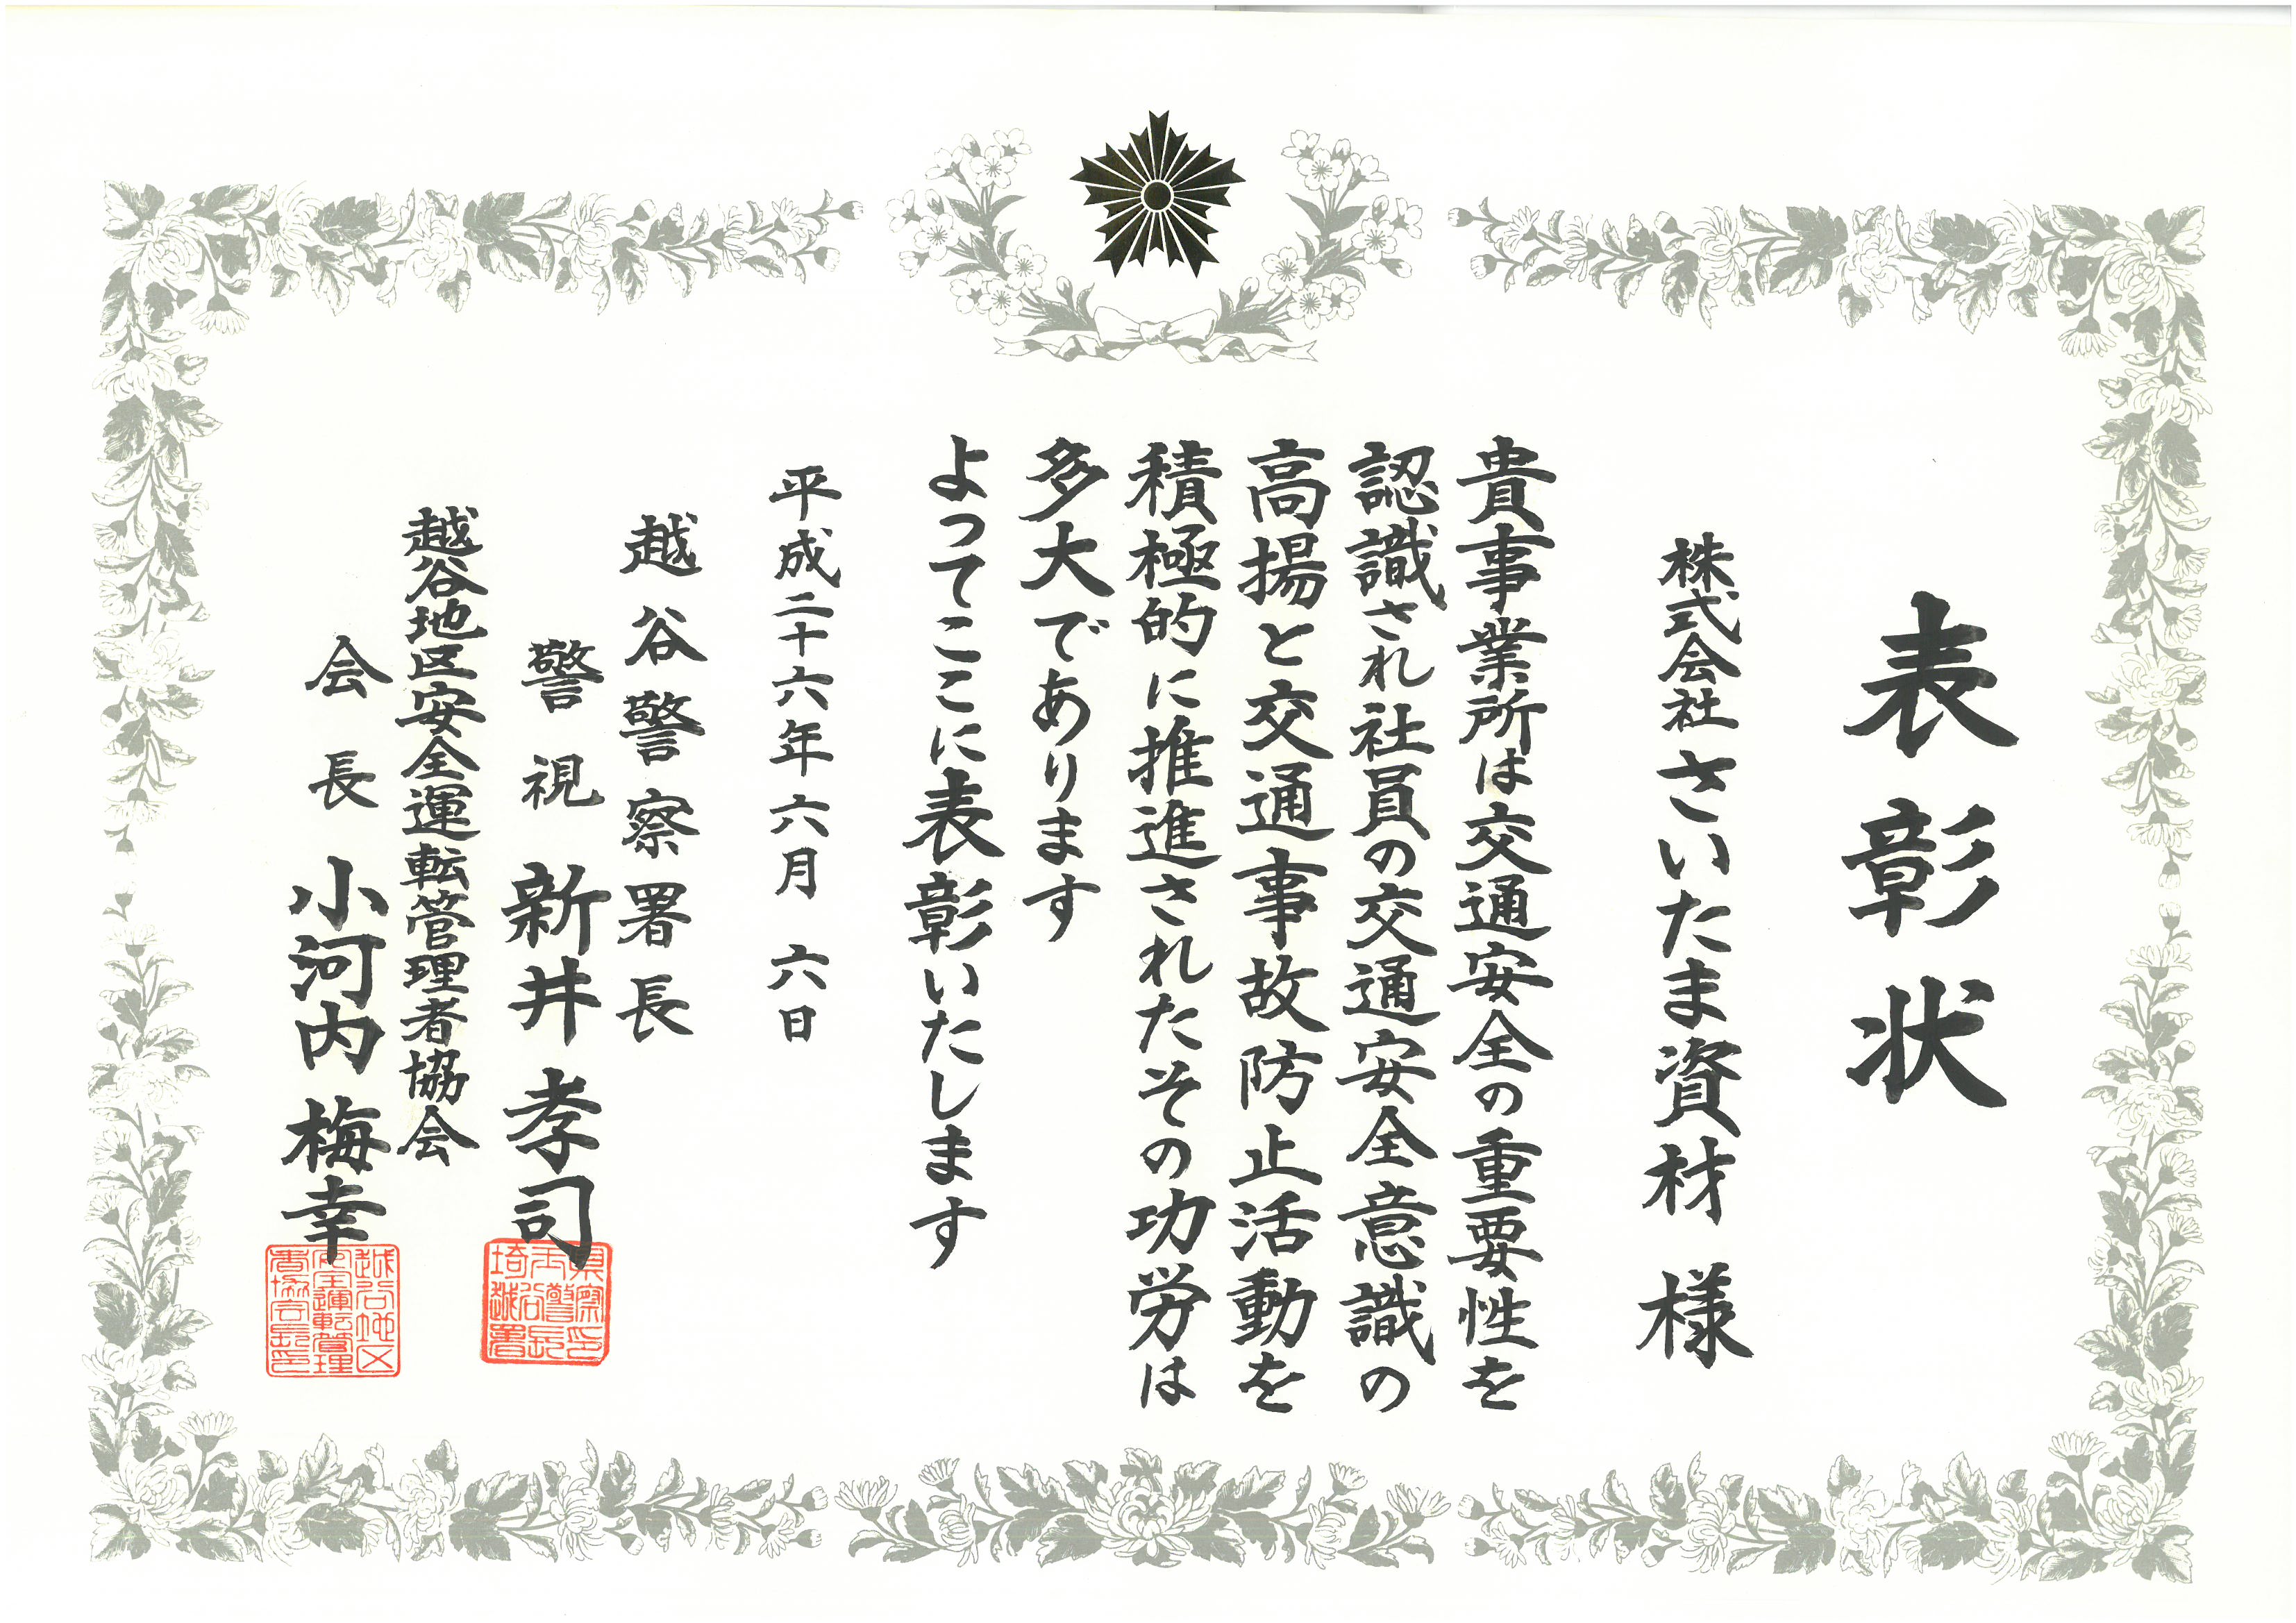 表彰状
株式会社さいたま資材 様
貴事業所は交通安全の重要性を
認識され社員の交通安全意識の
高揚と交通事故防止活動を
積極的に推進されたその功労は
多大であります
よってここに表彰いたします
平成二十六年六月 六日
越谷警察署長
警視 新井孝司
埼玉県越谷警察署長印
越谷地区安全運転管理者協会
会長 小河内梅幸
越谷地区安全運転管理者協会長印